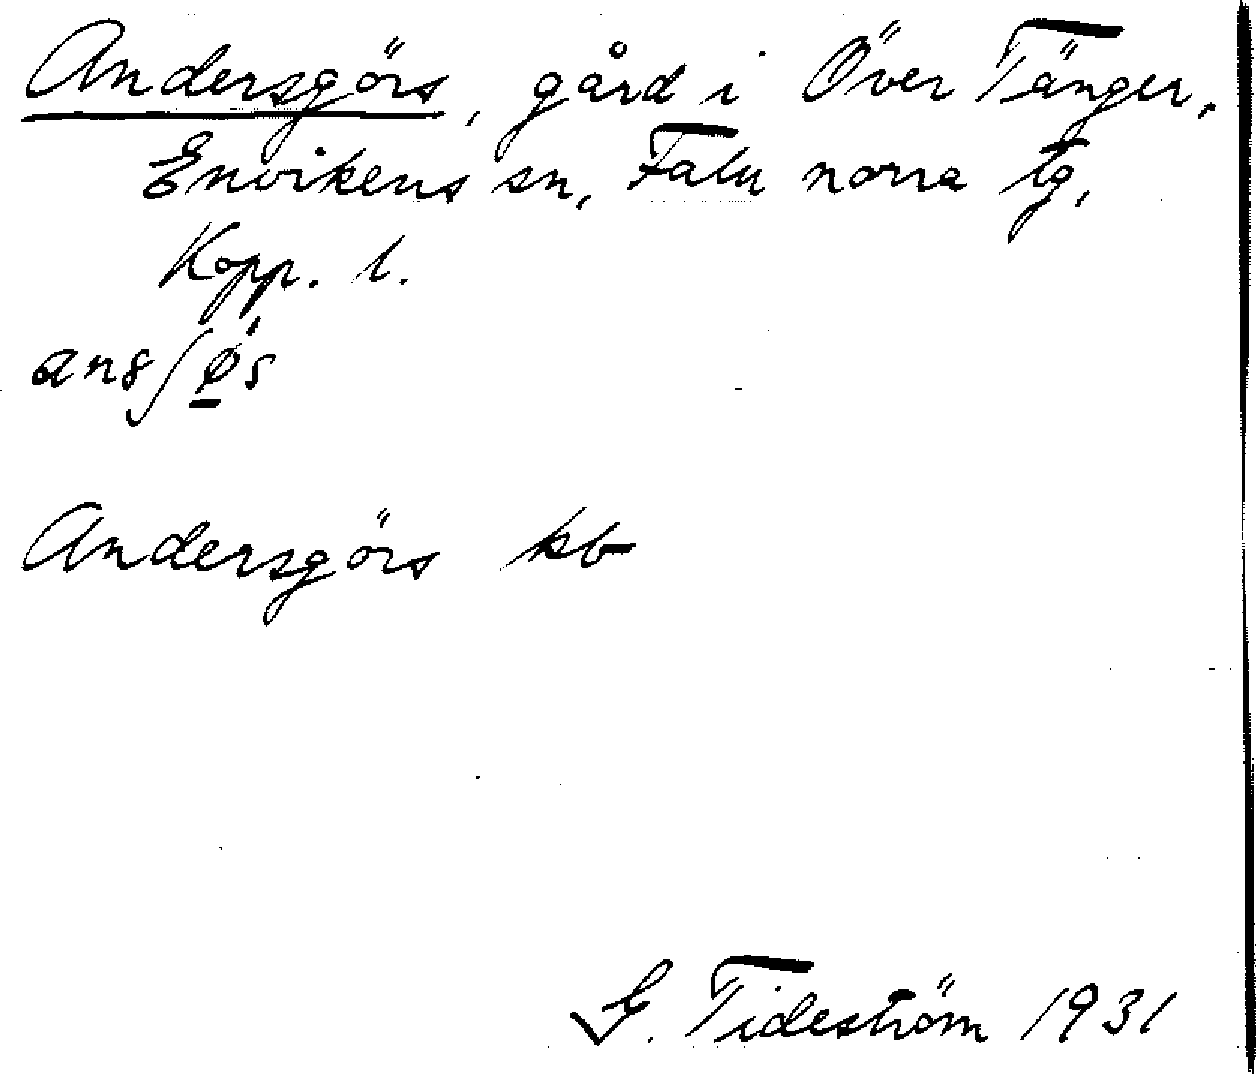 Andersgörs, gård i Över Tänger,
Envikens sn, Falu norra tg,
Kopp. l.
Andersgörs kb
G. Tideström 1931